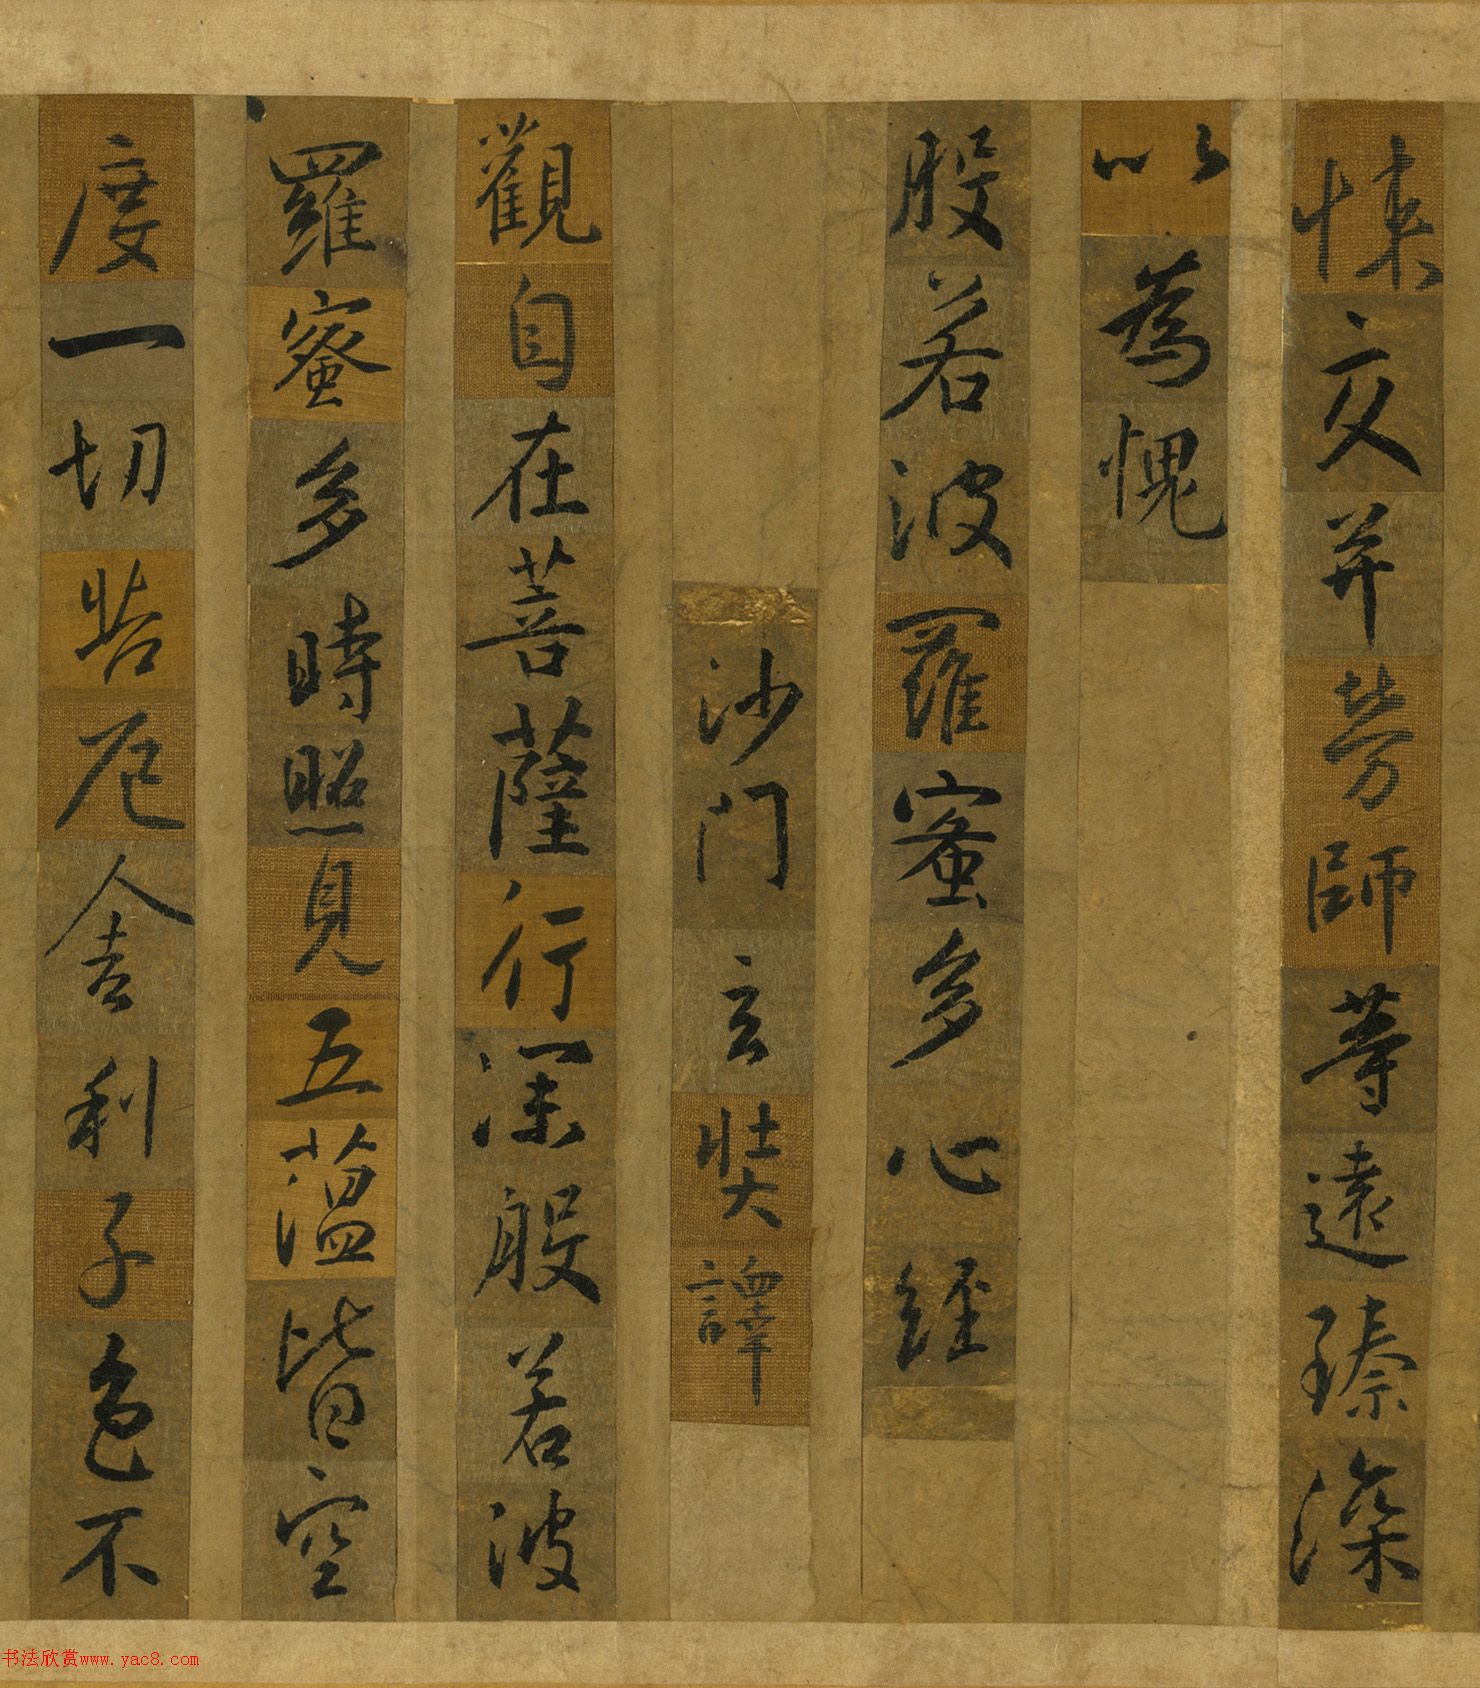 悚交并勞師等遠臻深
以為愧
般若波羅蜜多心經
沙門玄奘譯
觀自在菩薩行深般若波
羅蜜多時照見五蘊皆空
度一切苦厄舍利子色不
书法欣赏www.yac8.com